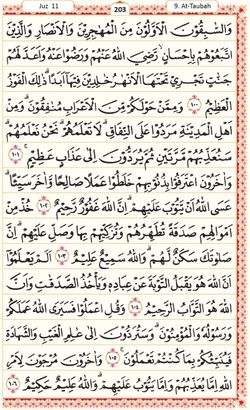 Juz 11
203
9. At-Taubah
وَالسّٰبِقُوْنَ الْاَوَّلُوْنَ مِنَ الْمُهٰجِرِيْنَ وَالْاَنْصَارِ وَالَّذِيْنَ
اتَّبَعُوْهُمْ بِاِحْسَانٍ رَّضِيَ اللّٰهُ عَنْهُمْ وَرَضُوْا عَنْهُ وَاَعَدَّ لَهُمْ
جَنّٰتٍ تَجْرِيْ تَحْتَهَا الْاَنْهٰرُ خٰلِدِيْنَ فِيْهَآ اَبَدًا ذٰلِكَ الْفَوْزُ
الْعَظِيْمُ ١٠٠ وَمِمَّنْ حَوْلَكُمْ مِّنَ الْاَعْرَابِ مُنٰفِقُوْنَ وَمِنْ
اَهْلِ الْمَدِيْنَةِ مَرَدُوْا عَلَى النِّفَاقِ لَا تَعْلَمُهُمْ نَحْنُ نَعْلَمُهُمْ
سَنُعَذِّبُهُمْ مَّرَّتَيْنِ ثُمَّ يُرَدُّوْنَ اِلٰى عَذَابٍ عَظِيْمٍ ١٠١
وَاٰخَرُوْنَ اعْتَرَفُوْا بِذُنُوْبِهِمْ خَلَطُوْا عَمَلًا صَالِحًا وَّاٰخَرَ سَيِّئًا
عَسَى اللّٰهُ اَنْ يَّتُوْبَ عَلَيْهِمْ اِنَّ اللّٰهَ غَفُوْرٌ رَّحِيْمٌ ١٠٢ خُذْ مِنْ
اَمْوَالِهِمْ صَدَقَةً تُطَهِّرُهُمْ وَتُزَكِّيْهِمْ بِهَا وَصَلِّ عَلَيْهِمْ اِنَّ
صَلٰوتَكَ سَكَنٌ لَّهُمْ وَاللّٰهُ سَمِيْعٌ عَلِيْمٌ ١٠٣ اَلَمْ يَعْلَمُوْٓا
اَنَّ اللّٰهَ هُوَ يَقْبَلُ التَّوْبَةَ عَنْ عِبَادِهٖ وَيَأْخُذُ الصَّدَقٰتِ وَاَنَّ
اللّٰهَ هُوَ التَّوَّابُ الرَّحِيْمُ ١٠٤ وَقُلِ اعْمَلُوْا فَسَيَرَى اللّٰهُ عَمَلَكُمْ
وَرَسُوْلُهٗ وَالْمُؤْمِنُوْنَ وَسَتُرَدُّوْنَ اِلٰى عٰلِمِ الْغَيْبِ وَالشَّهَادَةِ
فَيُنَبِّئُكُمْ بِمَا كُنْتُمْ تَعْمَلُوْنَ ١٠٥ وَاٰخَرُوْنَ مُرْجَوْنَ لِاَمْرِ
اللّٰهِ اِمَّا يُعَذِّبُهُمْ وَاِمَّا يَتُوْبُ عَلَيْهِمْ وَاللّٰهُ عَلِيْمٌ حَكِيْمٌ ١٠٦